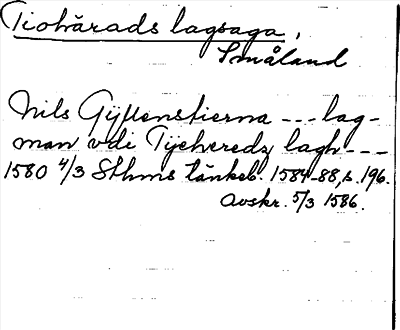 Tiohärads lagsaga,
Småland
Nils Gyllenstierna --- lag-
man vdi Tijeheredz lagh---
1580 4/3 Sthms tänkeb. 1584-88, s. 196.
Avskr. 5/3 1586.